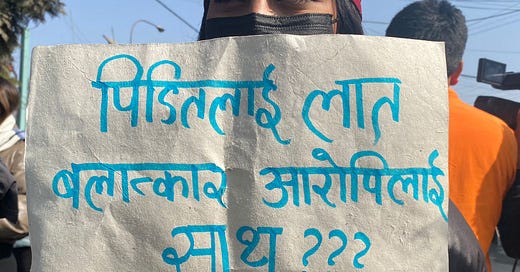 पिडितलाई लात
बलात्कार आरोपिलाई
साथ ???